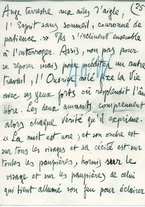 (25)
Ange terrestre aux ailes d'aigle,
l'Esprit sans sommeil, couronné de
patience. » Ils s'inclinent ensemble
à l'interroger. Assis, non pas pour
se reposer mais pour méditer un autre
travail, l'Ouvrier fixe la Vie
avec ses yeux forts où applaudit l'air
libre. Les deux amants comprennent
alors chaque vérité qu'il exprime.
« La nuit est une, et son ombre est
sur tous les visages et sa cécité est sur
toutes les paupières, hormis sur le
visage et sur les paupières de celui
qui tient allumé son feu pour éclairer